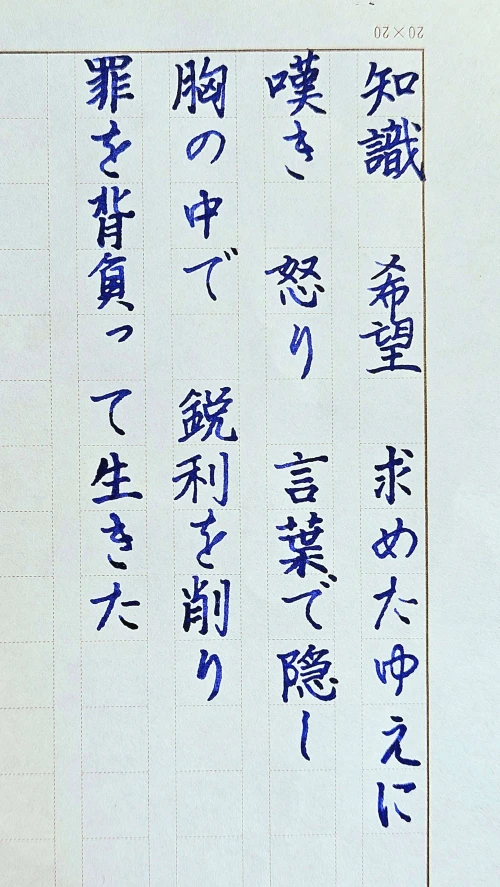 20×20
知識　希望　求めたゆえに
嘆き　怒り　言葉で隠し
胸の中で　鋭利を削り
罪を背負って生きた